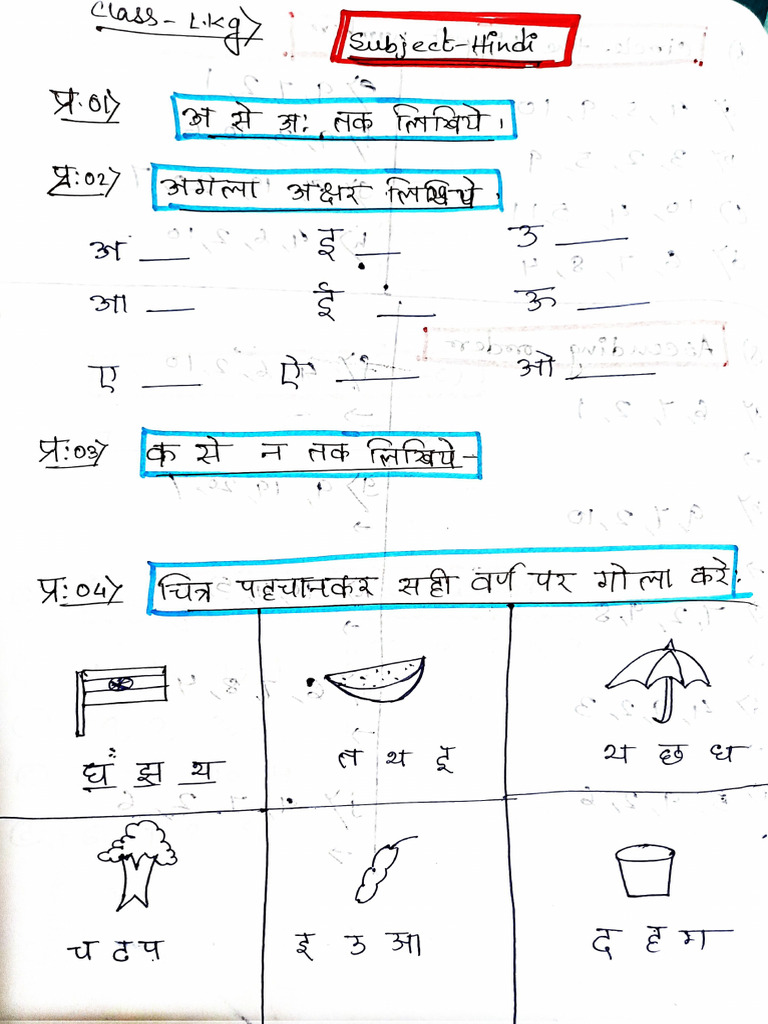 Class - L.Kg>
Subject-Hindi
प्र:01> अ से अः तक लिखिये।
प्र:02> अगला अक्षर लिखिये
अ __ इ __ उ __
आ __ ई __ ऊ __
ए __ ऐ __ ओ __
प्र:03> क से न तक लिखिये-
प्र:04> चित्र पहचानकर सही वर्ण पर गोला करे:
घ झ थ
त थ इ
य छ ध
च ट प
इ उ आ
द ह ग